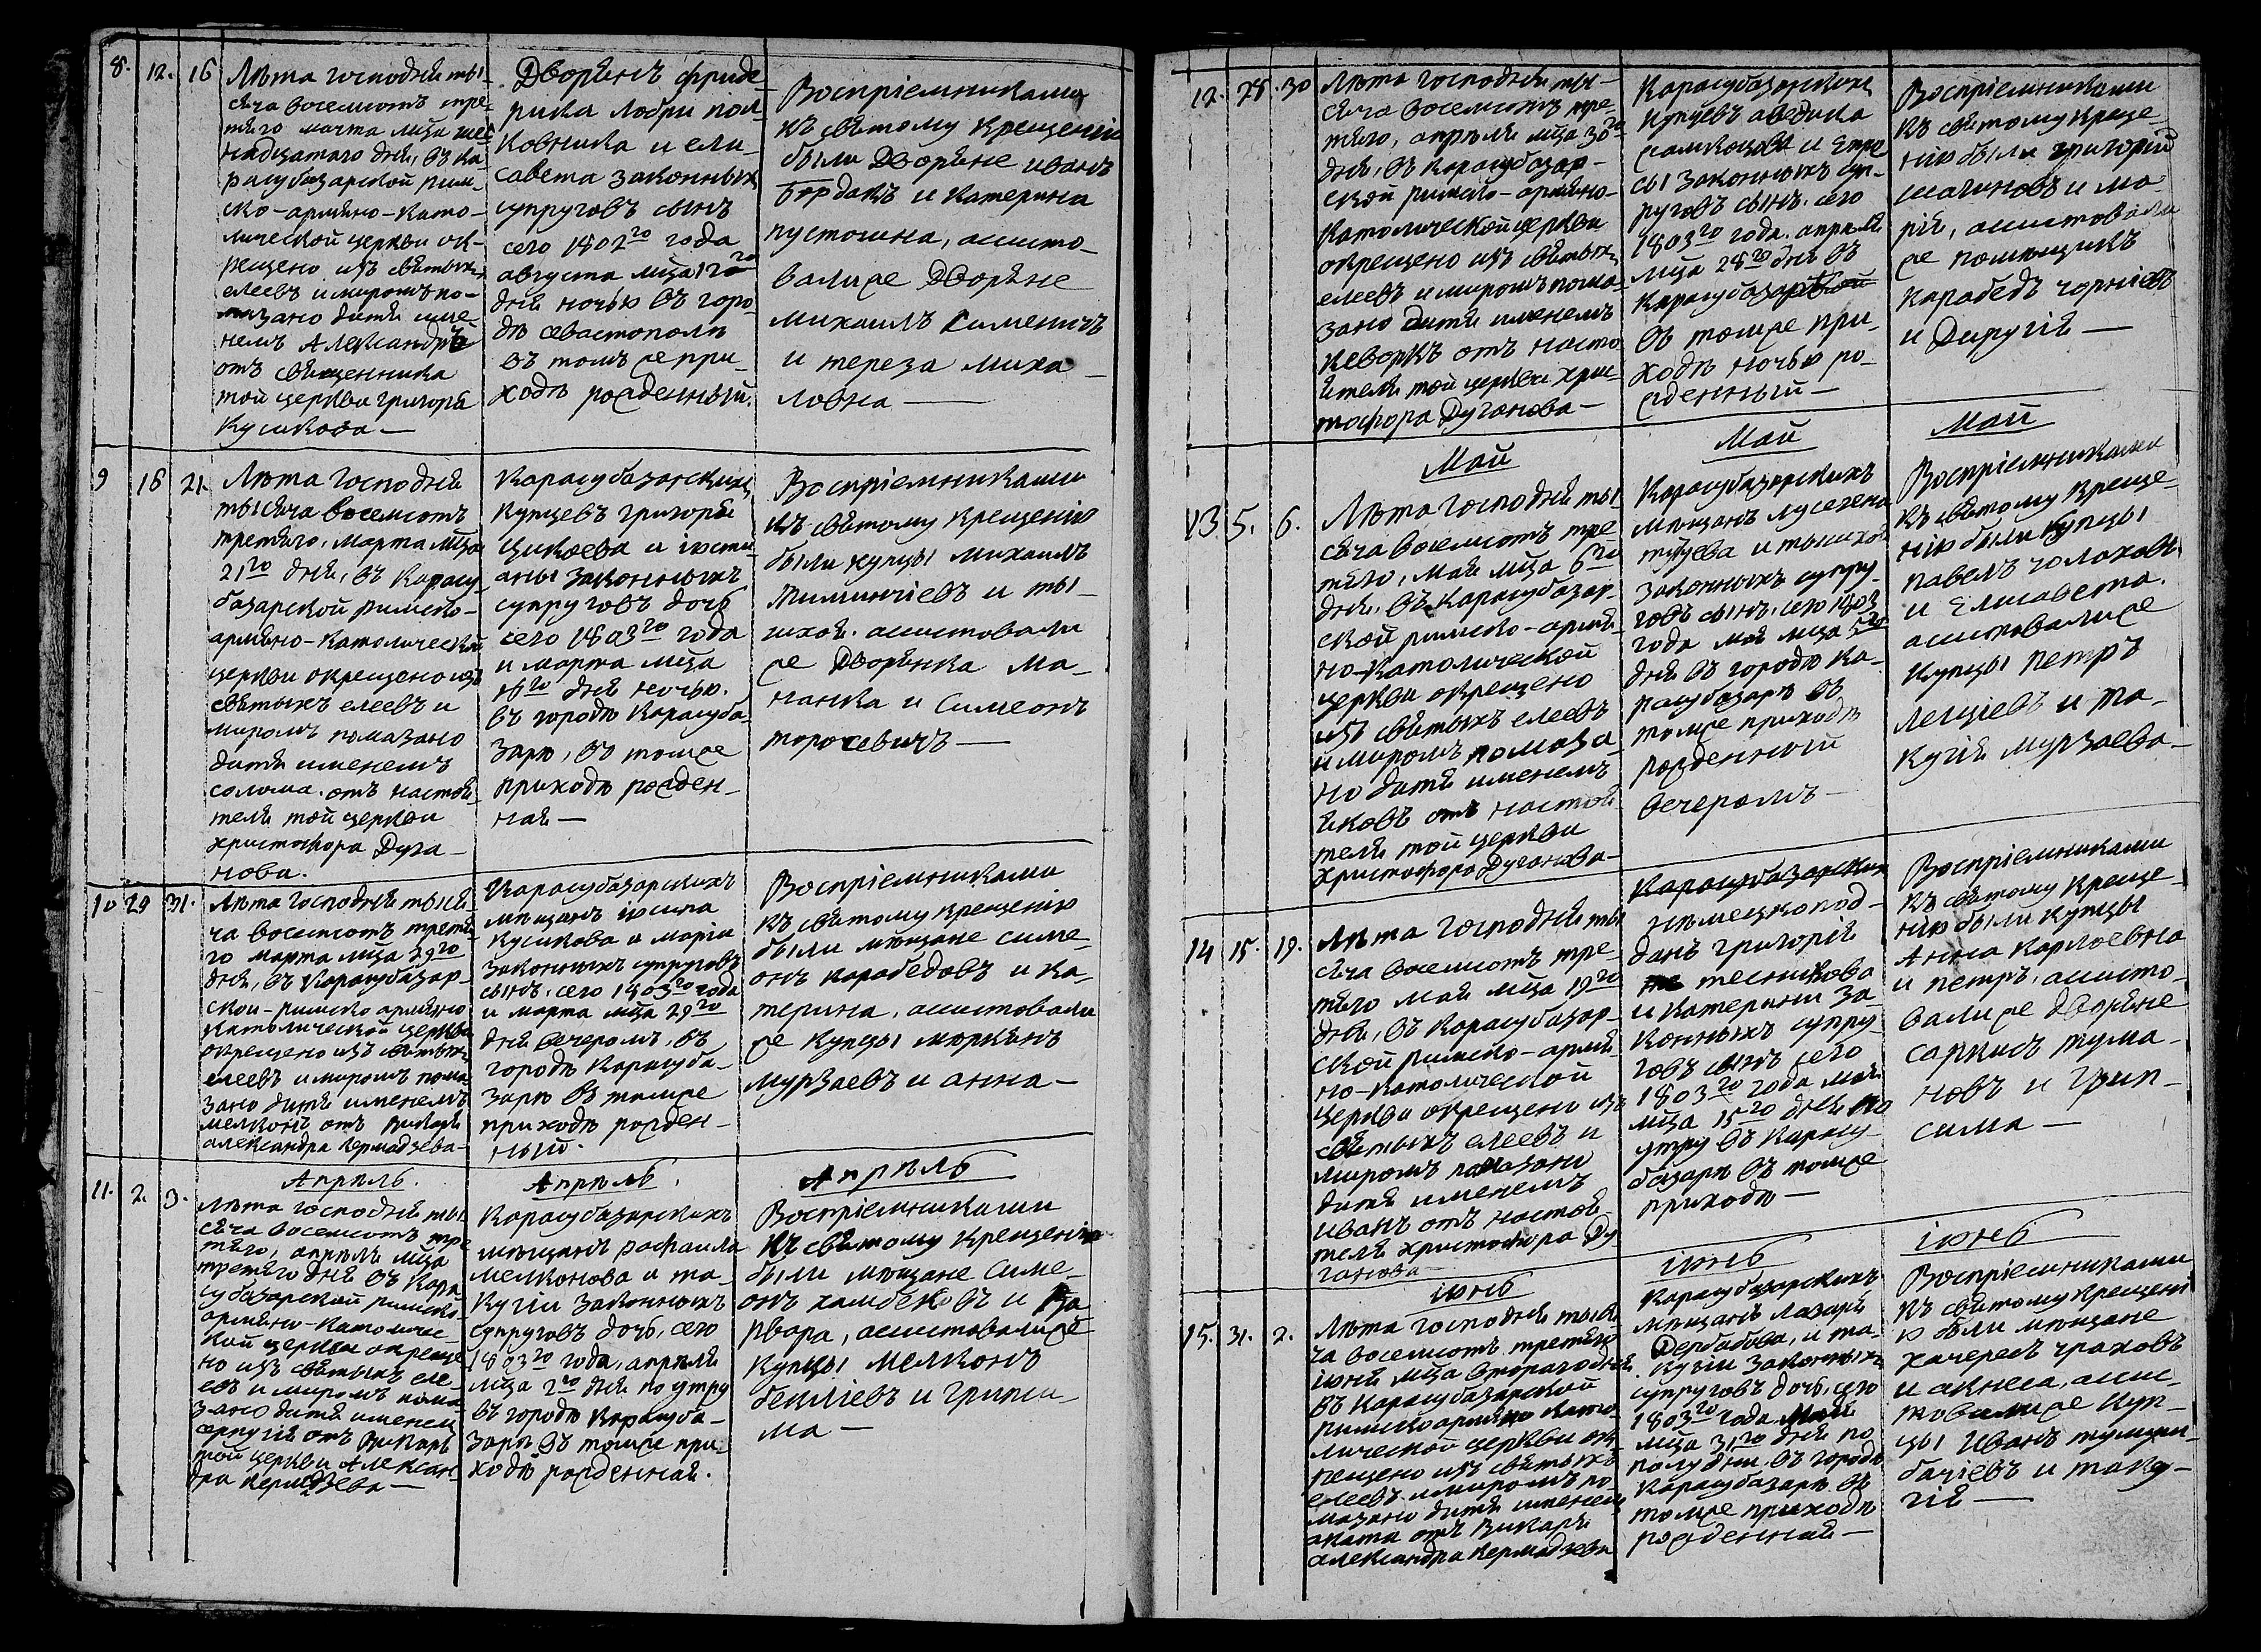 8. 12. 16
Лѣта господня ты
сяча восемсотъ тре-
тяго марта мца шес
надцатаго дня, въ ка
расубазарской рим-
ско-армяно-като-
лической церкви ок-
рещено изъ святыхъ
елеевъ и миромъ по-
мазано дитя име-
немъ Александръ
отъ священника
той церкви григоря
Кушкова—
Дворянъ фриде
рика Лобри пол-
ковника и ели-
савета законныхъ
супруговъ сынъ
сего 1802го года
августа мца 12го
дня ночью въ горо-
дѣ севастополѣ
въ томъ же при-
ходѣ рожденный.
Воспріемниками
къ святому крещенію
были Дворяне иванъ
Бардакъ и катерина
пустошина, асисто-
вали же Дворяне
михаилъ Сименичъ
и тереза миха
ловна —
9 16 21.
Лѣта господня
тысяча восемсотъ
третяго, марта мца
21го дня, въ карасу
базарской римско-
армяно-католической
церкви окрещено изъ
святыхъ елеевъ и
миромъ помазано
дитя именемъ
солома. отъ настоя
теля той церкви
христофора Дуга-
нова.
Карасубазарскихъ
Купцевъ григоря
Цикоева и іюсти
аны законныхъ
супруговъ дочь
сего 1803го года
и марта мца
16го дня ночью.
въ городѣ карасуба
зарѣ, въ томже
приходѣ рожден-
ная —
Воспріемниками
къ святому крещенію
были купцы михаилъ
и ты-
асистовали
же Дворянка ма-
нанка и Симеонъ
торосевичъ —
10 29 31.
Лѣта господня тыся
ча восемсотъ третя
го марта мца 29го
дня, въ карасубазар-
ской-римско армяно
католической церкви
окрещено изъ святыхъ
елеевъ и миромъ пома
зано дитя именемъ
мелконъ отъ викаря
александра кермадзева-
Карасубазарскихъ
мѣщанъ іосипа
Кушкова и марти
законныхъ супруговъ
сынъ. сего 1803го года
и марта мца 29го
дня вечеромъ, въ
городѣ карасуба-
зарѣ въ томже
приходѣ рожден-
ный.
Воспріемниками
къ святому крещенію
были мѣщане симе-
онъ карабедовъ и ка-
терина, асистовали
же купцы мкркянъ
мурзаевъ и анна —
11. 2. 3.
Апрѣль.
Лѣта господня ты
сяча восемсотъ тре
тяго, апрѣля мца
третяго дня въ кара
субазарской римско
армяно-католичес-
кой церкви окреще
но изъ святыхъ еле
евъ и миромъ пома
зано дитя именем
серпугія отъ викаря
той церкви Алексан-
дра кермадзева —
Апрѣль.
Карасубазарскихъ
мѣщанъ рафаила
мелконова и та-
кугіи законныхъ
супруговъ дочь, сего
1803го года, апрѣля
мца 2го дня по утру
въ городѣ карасуба-
зарѣ въ томже при-
ходѣ рожденная.
Апрѣль
Воспріемниками
къ святому крещенію
были мѣщане симе-
онъ хамбековъ и ва
рвара, асистовалиже
купцы мелконъ
беклієвъ и грипси
ма —
12. 28. 30
Лѣта господня ты-
сяча восемсотъ тре
тяго, апрѣля мца 30го
дня, въ карасубазар-
ской римско-армяно-
католической церкви
окрещено изъ святыхъ
елеевъ и миромъ пома-
зано дитя именемъ
кеворкъ отъ насто
ятеля той церкви хри-
тофора Дуганова-
Карасубазарскихъ
купцевъ аведика
и
законныхъ суп-
руговъ сынъ. сего
1803го года. апрѣля
мца 28го дня въ
карасубазарской
въ томже при-
ходѣ ночью ро-
жденный —
Воспріемниками
къ святому креще-
нію были григорій
шагиновъ и ма-
рія, асистовали
же помѣщикъ
карабедъ чорчіевъ
и Диругія —
13 5. 6.
Май
Лѣта господня ты
сяча восемсотъ тре-
тяго, мая мца 6го
дня, въ карасубазар-
ской римско-армя-
но-католической
церкви окрещено
изъ святыхъ елеевъ
и миромъ помаза
но дитя именемъ
яковъ отъ настоя
теля той церкви
христофора Дуганова-
Май
Карасубазарскихъ
мѣщанъ лусегена
законныхъ супру-
говъ сынъ. сего 1803
года мая мца 5го
дня въ городѣ ка-
расубазарѣ въ
томже приходѣ
рожденный
вечеромъ-
Май
Воспріемниками
къ святому креще-
нію были купцы
павелъ чолаховъ
и Елисавета.
асистовалиже
купцы петръ
и та-
кугія мурзаева-
14 15. 19.
Лѣта господня ты
сяча восемсотъ тре-
тяго мая мца 19го
дня, въ карасубазар-
ской римско-армя-
но-католической
церкви окрещено изъ
святыхъ елеевъ и
миромъ помазано
дитя именемъ
иванъ отъ настоя-
теля христофора Ду
ганова-
Карасубазарскихъ
нѣмецкопод-
данъ григорія
те тесникова
и катерини за-
конныхъ супру-
говъ сынъ сего
1803го года мая
мца 15го дня по
утру въ карасу-
базарѣ въ томже
приходѣ —
Воспріемниками
къ святому креще-
нію были купцы
Анна карловна
и петръ. асисто-
вали же дворяне
саркисъ тума-
новъ и грип-
сима —
15. 31. 2.
іюнь
Лѣта господня тыся
ча восемсотъ третяго
іюня мца втораго дня.
въ карасубазарской
римскоармяно като-
лической церкви ок-
рещено изъ святыхъ
елеевъ и миромъ по-
мазано дитя именем
аката отъ викаря
александра кермадзева
іюнь
Карасубазарскихъ
мѣщанъ лазаря
Дербабова, и та-
кугіи законныхъ
супруговъ дочь, сего
1803го года мая
мца 31го дня по
полудни. въ городѣ
карасубазарѣ въ
томже приходѣ
рожденная —
іюнь
Воспріемниками
къ святому крещені
ю были мѣщане
хачересъ чраховъ
и акнеса, асис-
товалиже куп-
цы иванъ тумун-
бачіевъ и таку-
гія —